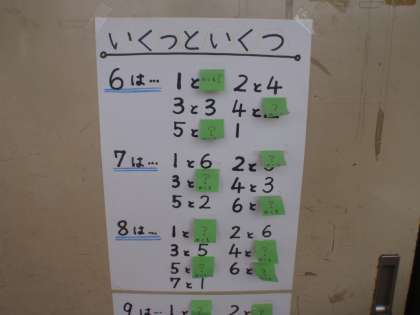 いくつといくつ
6は… 1と? 2と4
3と3 4と?
5と? 1
7は… 1と6 2と?
3と? 4と3
5と2 6と?
8は… 1と? 2と6
3と5 4と?
5と? 6と?
7と1
9は… 1と? 2と?